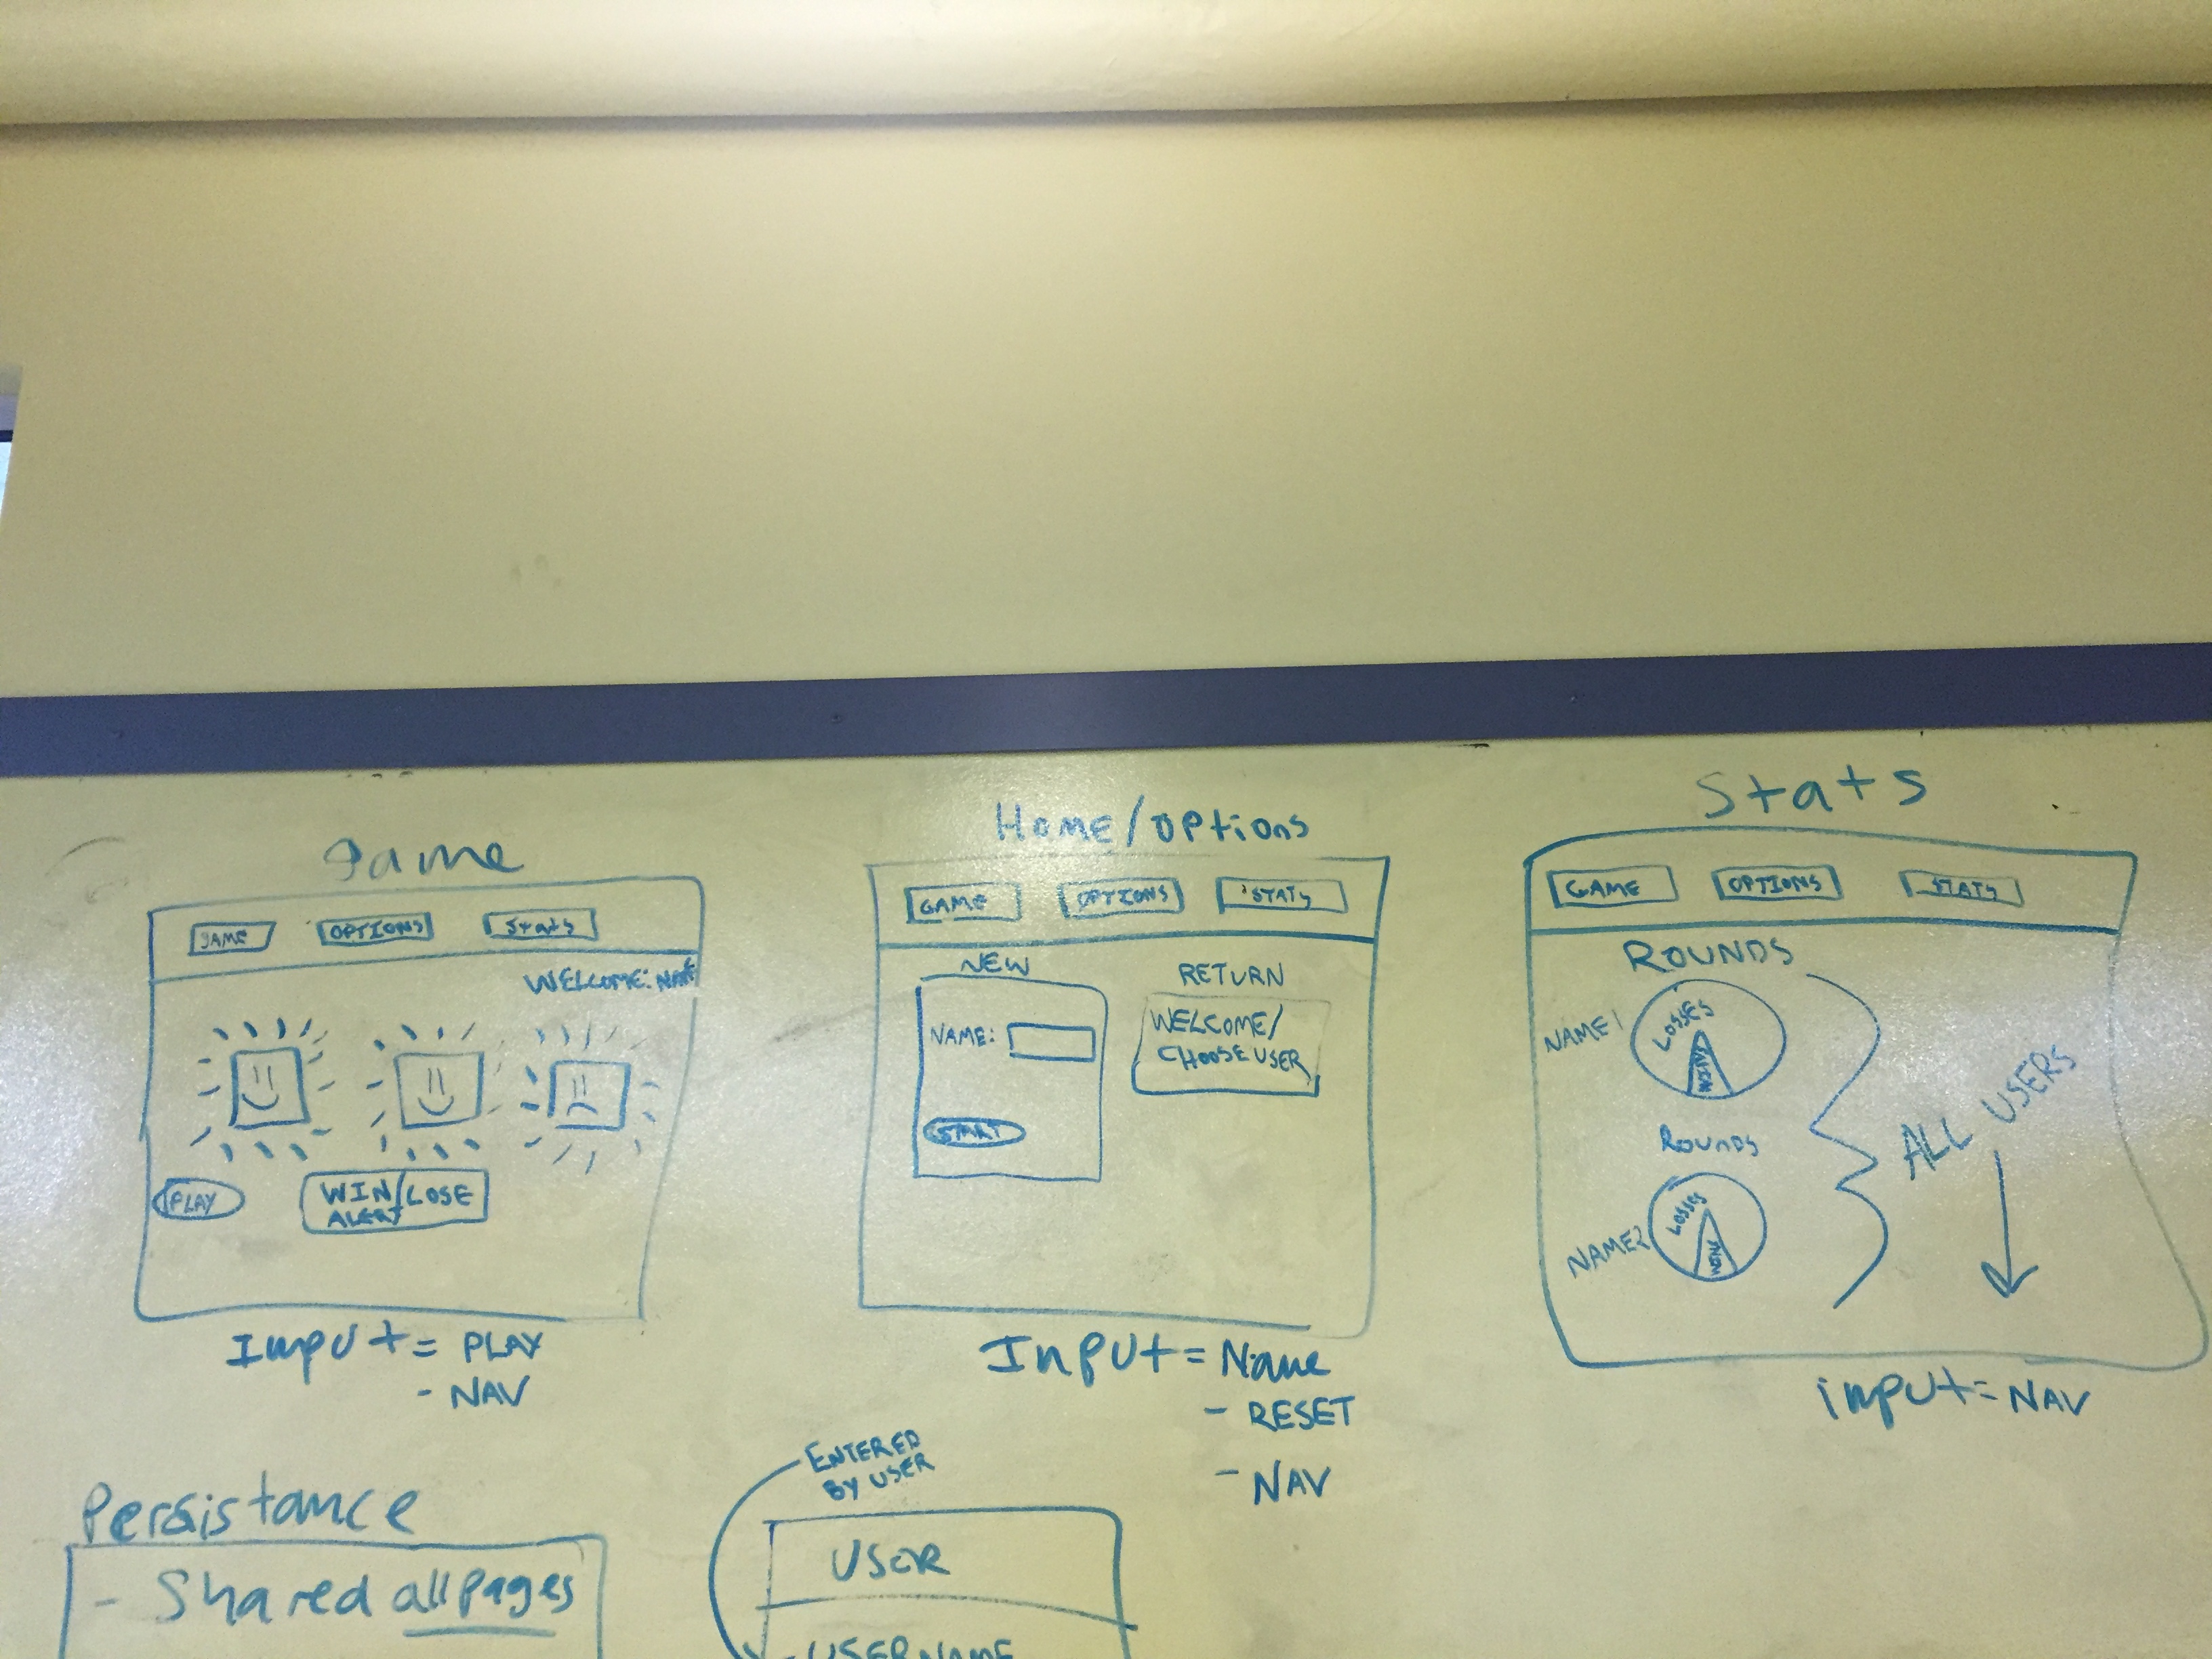 game
GAME OPTIONS Stats
WELCOME:
PLAY
WIN/LOSE
ALERT
Input = PLAY
- NAV
Home/options
GAME OPTIONS STATS
NEW
NAME:
START
RETURN
WELCOME/
CHOOSE USER
Input = Name
- RESET
- NAV
Stats
GAME OPTIONS STATS
ROUNDS
NAME 1
LOSSES
ROUNDS
NAME 2
LOSSES
ALL USERS
input = NAV
Persistance
- Shared all pages
ENTERED
BY USER
USER
- USERNAME